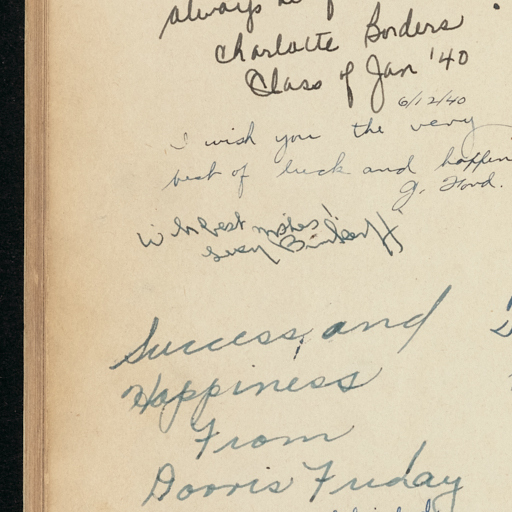 always
Charlotte Borders
Class of Jan '40
6/12/40
I wish you the very
best of luck and happin
J. Ford.
With best wishes!
Success and
Happiness
From
Dorris Friday